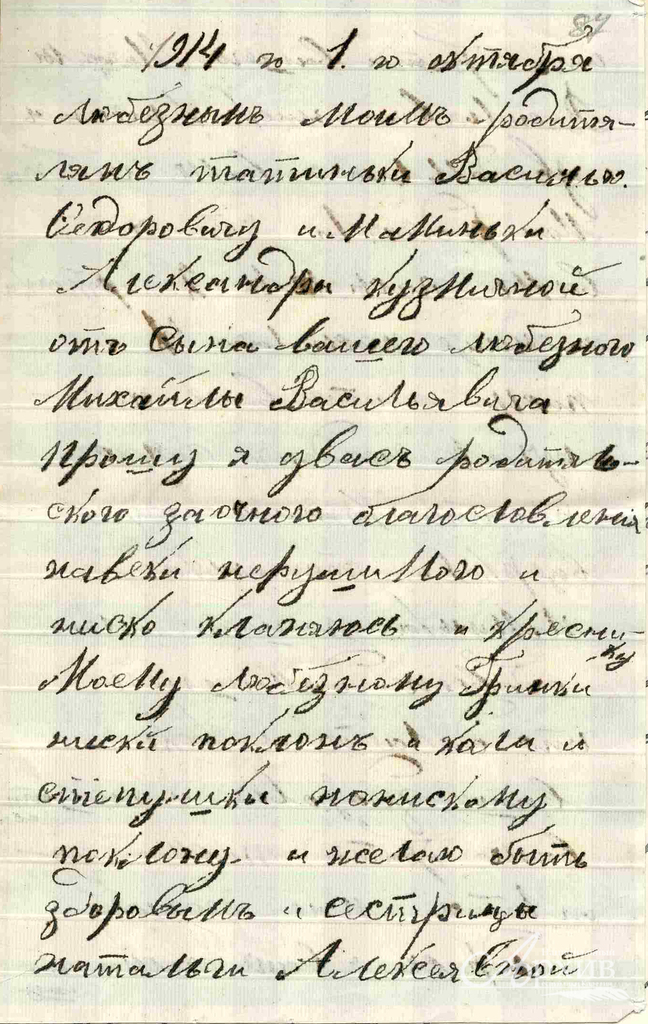 84
1914 го 1. го октября
любезнымъ моимъ родитя-
лямъ татиньки Василью.
Федоровичу и маминьки
Александры кузминичной
отъ сына вашего любезного
Михайлы Васильявича
прошу я увасъ родитель-
ского заочного благословления
навеки нерушимого и
ниско кланяюсь и кресни-
ку
Моему любезному Гринки
ниски поклонъ и коли и
степушки понискому
поклону и желаю быть
здоровымъ и сестрицы
натальи Алексеявной